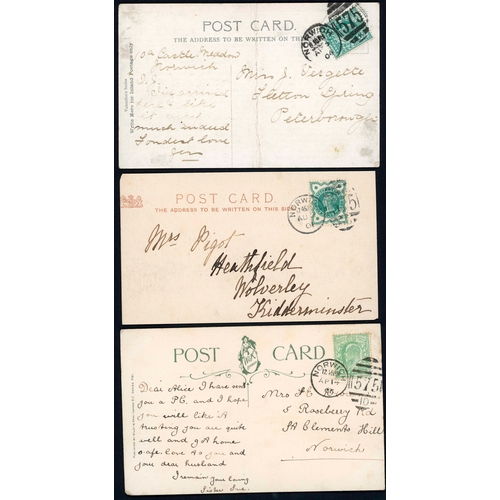 POST CARD.
THE ADDRESS TO BE WRITTEN ON THE
NORWICH
575
Castle Meadow
Norwich
Miss J. Vergette
Fletton Spring
Peterborough
like
much indeed
Fondest love
Write Here for Inland Postage only
POST CARD.
THE ADDRESS TO BE WRITTEN ON THIS SIDE
NORWICH
5
Mrs Pigot
Heathfield,
Wolverley
Kidderminster
POST CARD
NORWICH
AP 14
575
10
Dear Alice I have sent
you a P.C, and I hope
you will like it
trusting you are quite
well and got home
safe. love to you and
your dear husband
I remain your loving
Sister
Mrs
5 Rosebery Rd
St Clements Hill
Norwich